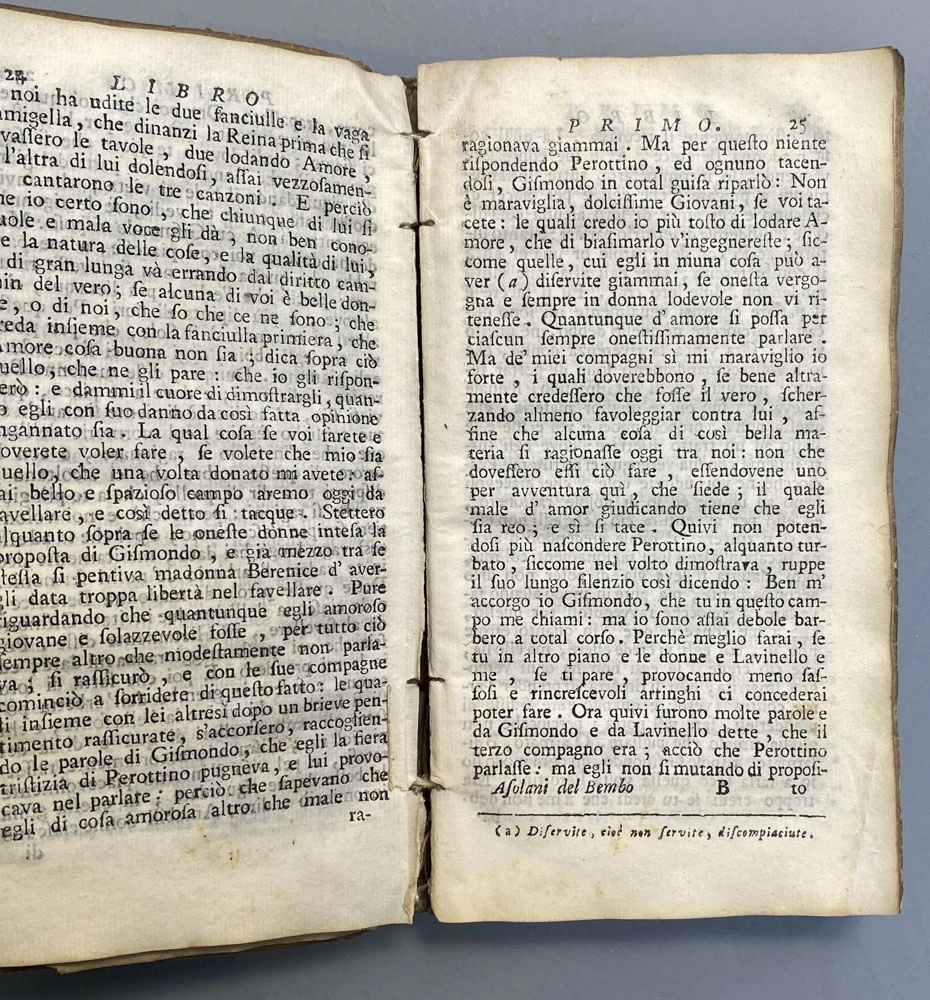 24 LIBRO
noi ha udite le due fanciulle e la vaga
amigella, che dinanzi la Reina prima che ſi
vaſſero le tavole, due lodando Amore,
l'altra di lui dolendoſi, aſſai vezzoſamen-
cantarono le tre canzoni. E perciò
io certo ſono, che chiunque di lui ſi
e mala voce gli dà, non ben cono-
e la natura delle coſe, e la qualità di lui,
di gran lunga và errando dal diritto cam-
in del vero; ſe alcuna di voi è belle don-
e, o di noi, che ſo che ce ne ſono; che
reda inſieme con la fanciulla primiera, che
Amore coſa buona non ſia; dica ſopra ciò
quello, che ne gli pare: che io gli riſpon-
erò: e dammi il cuore di dimoſtrargli, quan-
o egli con ſuo danno da così fatta opinione
ngannato ſia. La qual coſa ſe voi farete e
overete voler fare, ſe volete che mio ſia
quello, che una volta donato mi avete: aſ-
ai bello e ſpazioſo campo aremo oggi da
avellare, e così detto ſi tacque. Stettero
alquanto ſopra ſe le oneſte donne inteſa la
propoſta di Giſmondo, e già mezzo tra ſe
teſſa ſi pentiva madonna Berenice d' aver-
gli data troppa libertà nel favellare. Pure
riguardando che quantunque egli amoroſo
giovane e ſolazzevole foſſe, per tutto ciò
ſempre altro che modeſtamente non parla-
va; ſi raſſicurò, e con le ſue compagne
cominciò a ſorridere di queſto fatto: le qua-
li inſieme con lei altresì dopo un brieve pen-
timento raſſicurate, s'accorſero, raccoglien-
do le parole di Giſmondo, che egli la fiera
triſtizia di Perottino pugneva, e lui provo-
cava nel parlare: perciò che ſapevano che
egli di coſa amoroſa altro che male non
ra-
PRIMO. 25
ragionava giammai. Ma per queſto niente
riſpondendo Perottino, ed ognuno tacen-
doſi, Giſmondo in cotal guiſa riparlò: Non
è maraviglia, dolciſſime Giovani, ſe voi ta-
cete: le quali credo io più toſto di lodare A-
more, che di biaſimarlo v'ingegnereſte; ſic-
come quelle, cui egli in niuna coſa può a-
ver (a) diſervite giammai, ſe oneſta vergo-
gna e ſempre in donna lodevole non vi ri-
teneſſe. Quantunque d'amore ſi poſſa per
ciaſcun ſempre oneſtiſſimamente parlare.
Ma de' miei compagni sì mi maraviglio io
forte, i quali doverebbono, ſe bene altra-
mente credeſſero che foſſe il vero, ſcher-
zando almeno favoleggiar contra lui, af-
fine che alcuna coſa di così bella ma-
teria ſi ragionaſſe oggi tra noi: non che
doveſſero eſſi ciò fare, eſſendovene uno
per avventura quì, che ſiede; il quale
male d' amor giudicando tiene che egli
ſia reo; e sì ſi tace. Quivi non poten-
doſi più naſcondere Perottino, alquanto tur-
bato, ſiccome nel volto dimoſtrava, ruppe
il ſuo lungo ſilenzio così dicendo: Ben m'
accorgo io Giſmondo, che tu in queſto cam-
po me chiami: ma io ſono aſſai debole bar-
bero a cotal corſo. Perchè meglio farai, ſe
tu in altro piano e le donne e Lavinello e
me, ſe ti pare, provocando meno ſaſ-
ſoſi e rincreſcevoli arringhi ci concederai
poter fare. Ora quivi furono molte parole e
da Giſmondo e da Lavinello dette, che il
terzo compagno era; acciò che Perottino
parlaſſe: ma egli non ſi mutando di propoſi-
Aſolani del Bembo B to
(a) Diſervite, cioè non ſervite, diſcompiaciute.